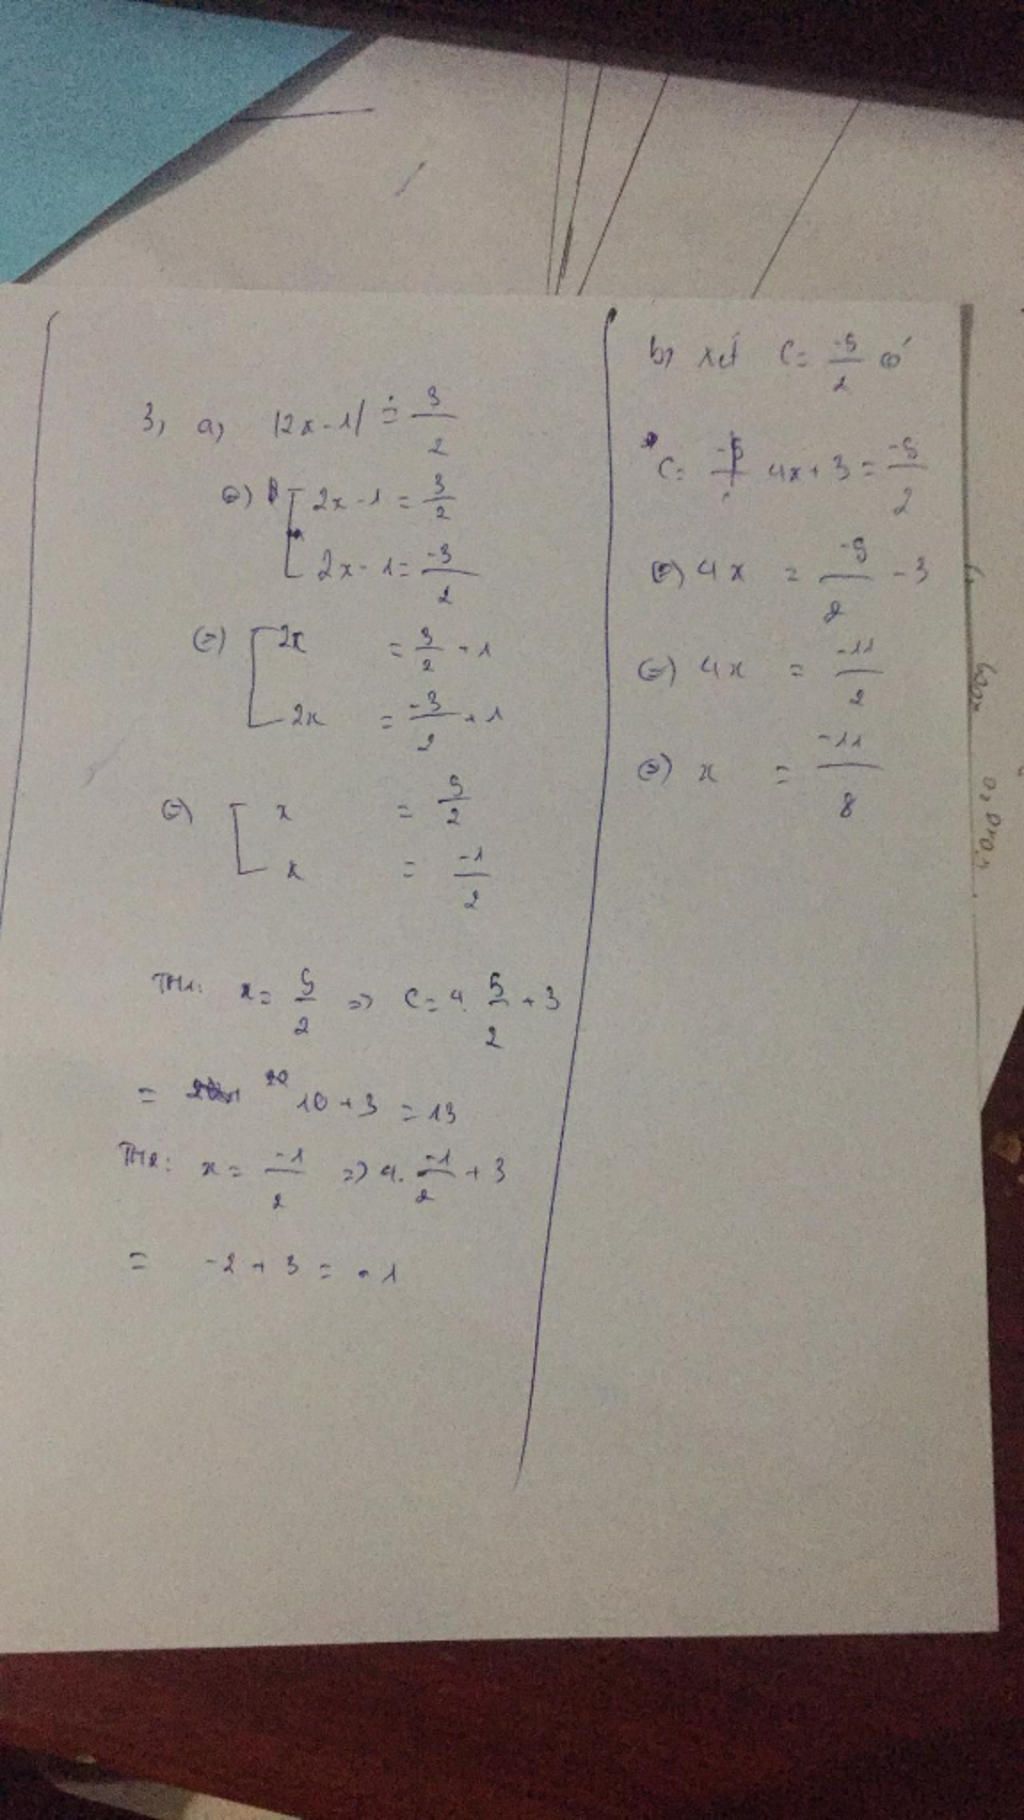 3, a) |2x-1| = 3/2
⇔ [ 2x - 1 = 3/2
2x - 1 = -3/2
⇔ [ 2x = 3/2 + 1
2x = -3/2 + 1
⇔ [ x = 5/2
x = -1/2
TH1: x = 5/2 => C = 4. 5/2 + 3
= 10 + 3 = 13
TH2: x = -1/2 => 4. -1/2 + 3
= -2 + 3 = -1
b) xét C = -5/2 có
C = 4x + 3 = -5/2
⇔ 4x = -5/2 - 3
⇔ 4x = -11/2
⇔ x = -11/8